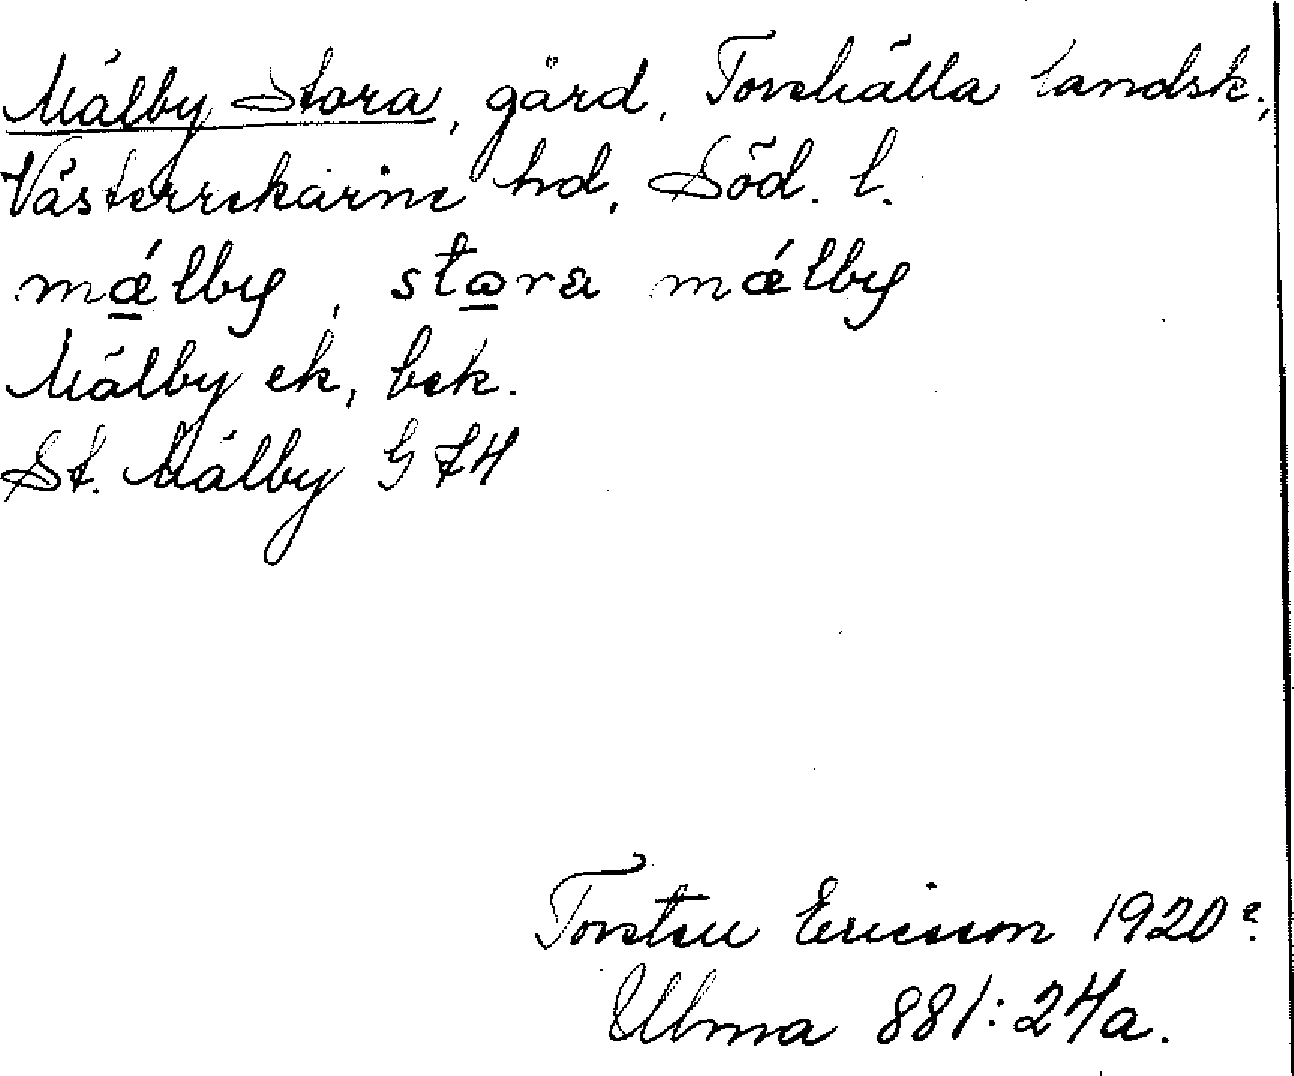 Mälby Stora, gård, Torshälla landsk.,
Västerrekarne hd, Söd. l.
mǽlby, stɷra mǽlby
Mälby ek, bek.
St. Mälby G 74
Torsten Ericsson 1920?
Ulma 881:24a.